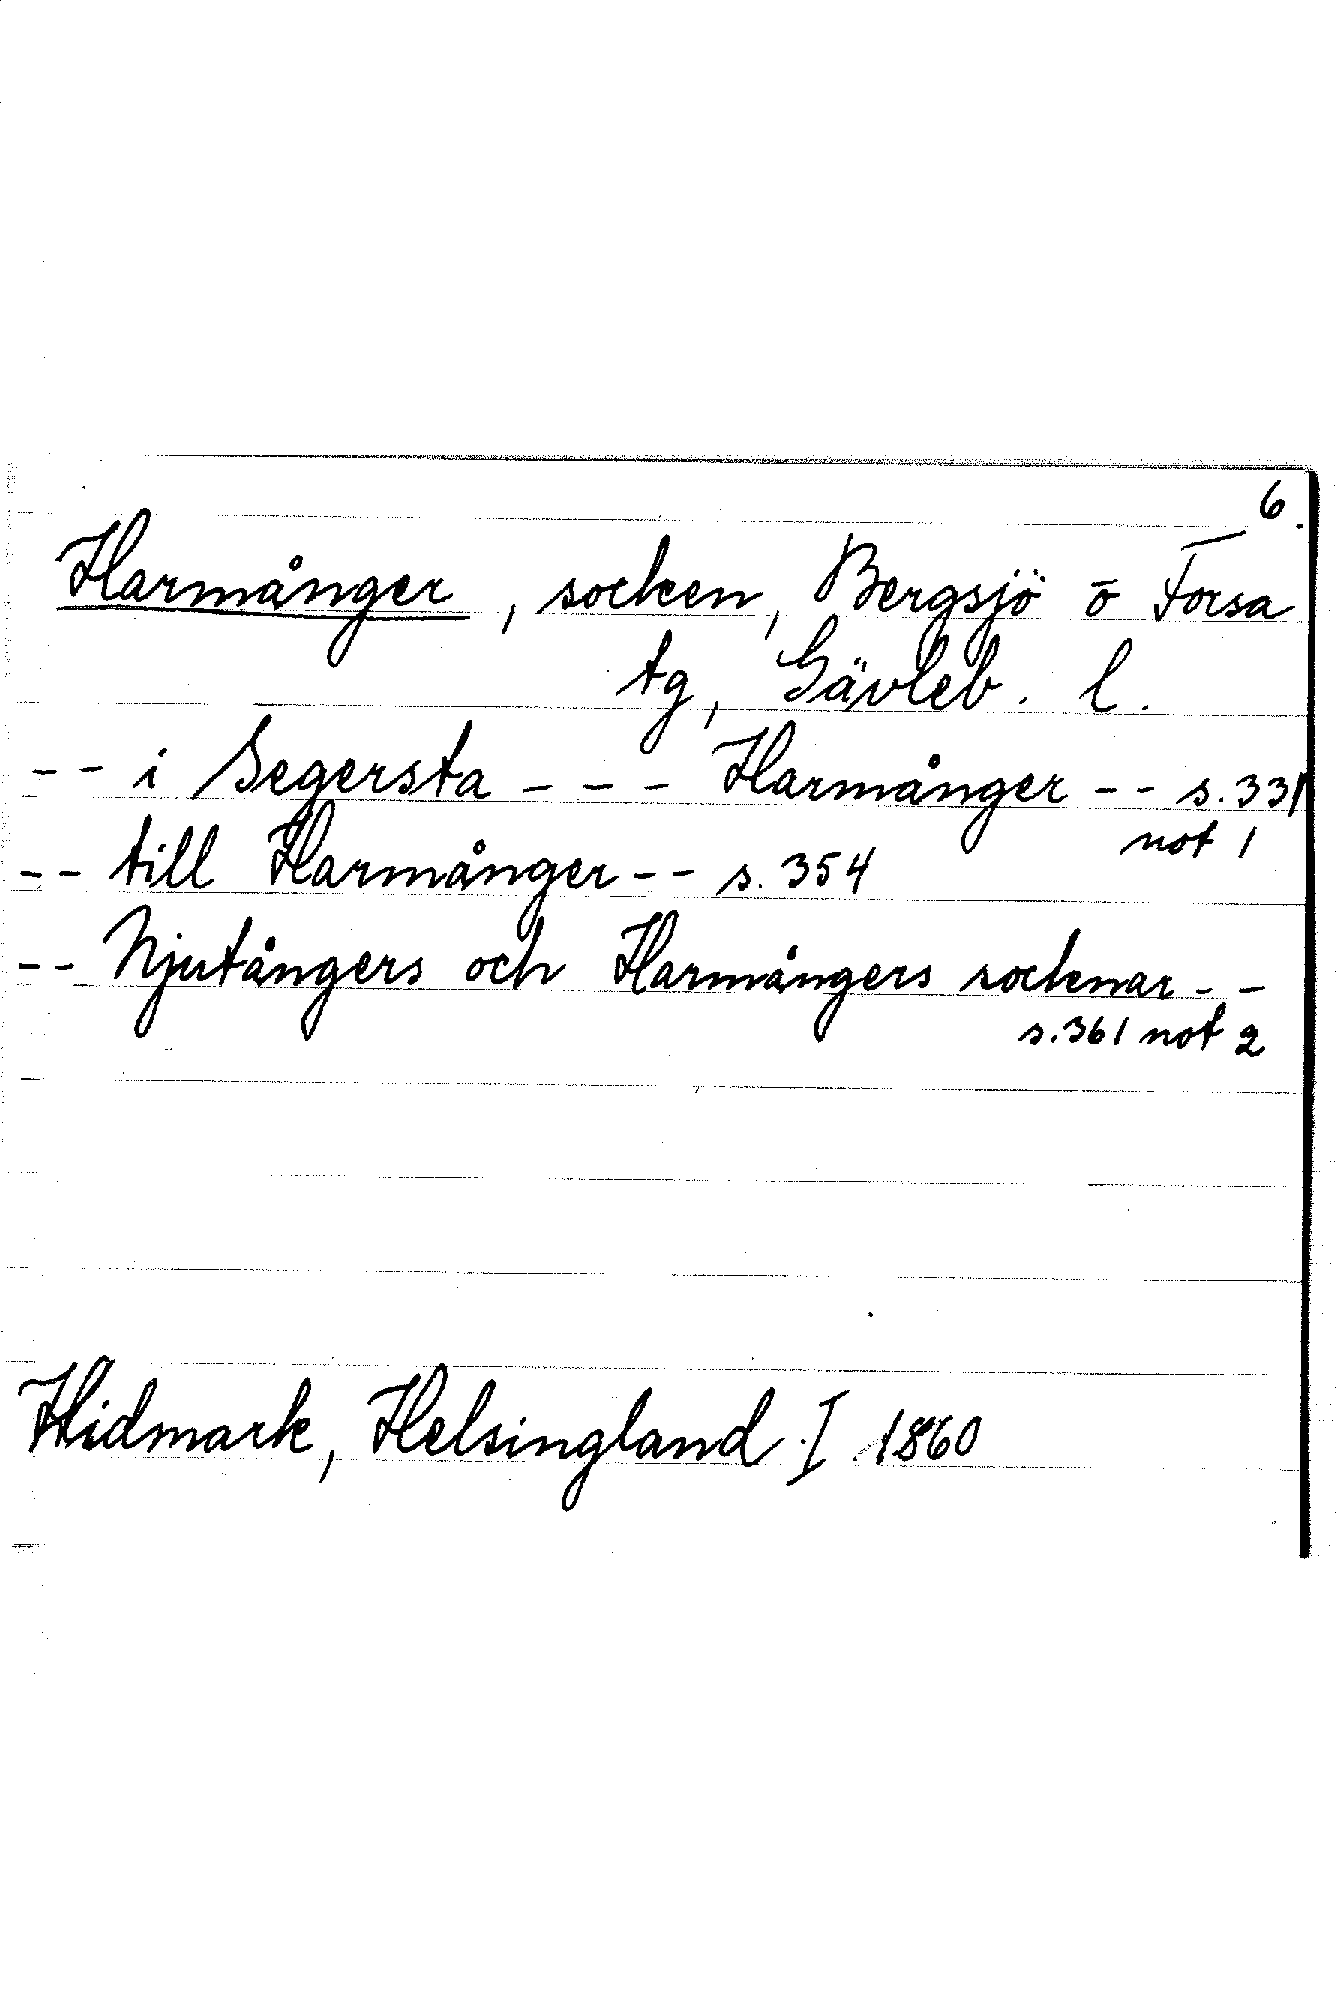 6.
Harmånger, socken, Bergsjö o Forsa
tg, Gävleb. l.
-- i Segersta --- Harmånger -- s. 331
not 1
-- till Harmånger -- s. 354
-- Njutångers och Harmångers socknar --
s. 361 not 2
Widmark, Helsingland I 1860